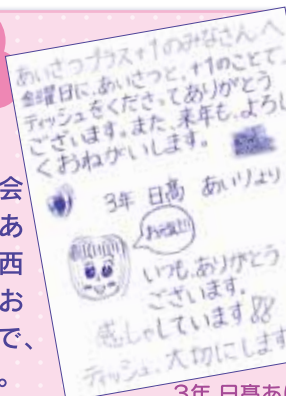 あいさつプラス+1のみなさんへ
金曜日に、あいさつと、+1のことで、
ティッシュをくださってありがとう
ございます。また、来年も、よろし
くおねがいします。
3年 日髙 あいりより
いつも、ありがとう
ございます。
感しゃしています
ティッシュ、大切にします
会
あ
西
お
で、
。
3年 日髙あい